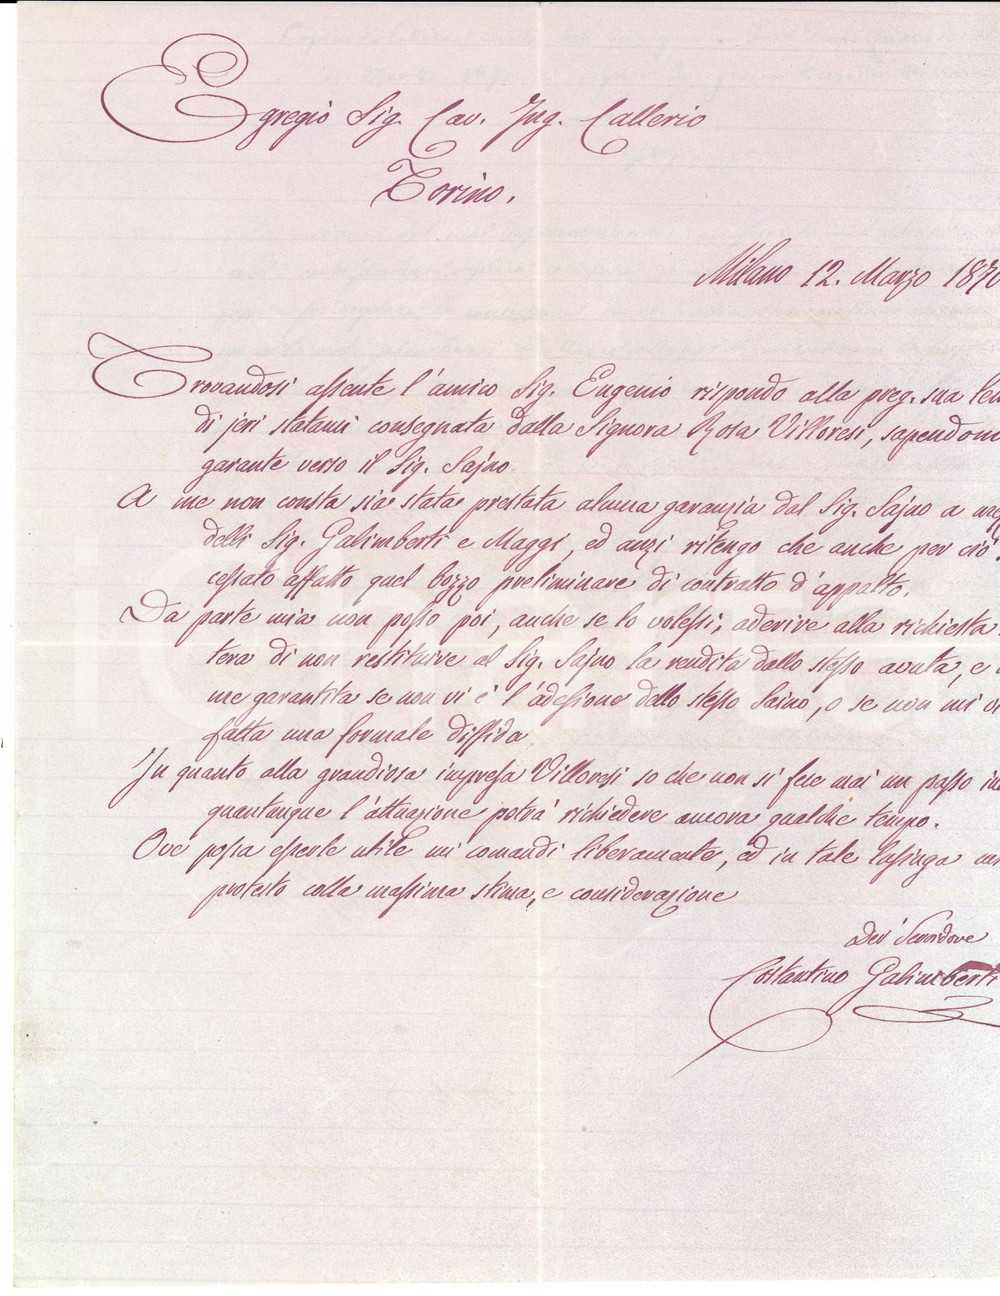 Egregio Sig. Cav. Ing. Callerio
Torino.
Milano 12. Marzo 187
Trovandosi assente l'amico Sig. Eugenio rispondo alla preg. sua
di jeri statami consegnata dalla Signora Rosa Villoresi,
garante verso il Sig. Sajno
A me non consta sia stata prestata alcuna garanzia dal Sig. Sajno a
delli Sig. Galimberti e Maggi, ed anzi ritengo che anche per ciò
cessato affatto quel bozzo preliminare di contratto d'appalto.
Da parte mia non posso poi, anche se lo volessi, aderire alla richiesta
tera di non restituire al Sig. Sajno la rendita dallo stesso avuta, e
me garantita se non vi è l'adesione dello stesso Saino, o se non mi
fatta una formale diffida
In quanto alla grandiosa impresa Villoresi so che non si fece mai un passo
quantunque l'attuazione potrà richiedere ancora qualche tempo.
Ove possa esserle utile mi comandi liberamente, ed in tale lusinga
protesto colla massima stima, e considerazione
Dev.º Servidore
Costantino Galimberti
iCharta